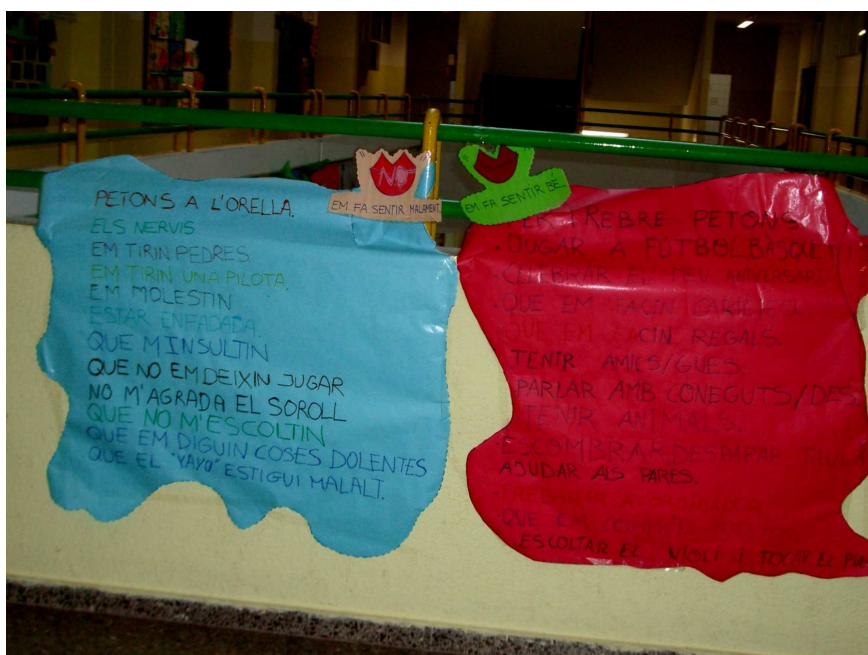 NO
EM FA SENTIR MALAMENT
PETONS A L'ORELLA.
ELS NERVIS
EM TIRIN PEDRES.
EM TIRIN UNA PILOTA.
EM MOLESTIN
ESTAR ENFADADA.
QUE M'INSULTIN
QUE NO EM DEIXIN JUGAR
NO M'AGRADA EL SOROLL
QUE NO M'ESCOLTIN
QUE EM DIGUIN COSES DOLENTES
QUE EL "YAYO" ESTIGUI MALALT.
EM FA SENTIR BÉ.
PETONS
·JUGAR A FUTBOL BÀSQUET
·CELEBRAR EL MEU ANIVERSARI
·QUE EM FACIN
QUE EM FACIN REGALS.
TENIR AMICS/GUES.
PARLAR AMB CONEGUTS/DES
TENIR ANIMALS.
·ESCOMBRAR-DESPARAR TAULA
AJUDAR ALS PARES.
·QUE EM
ESCOLTAR EL VIOLÍ I TOCAR EL